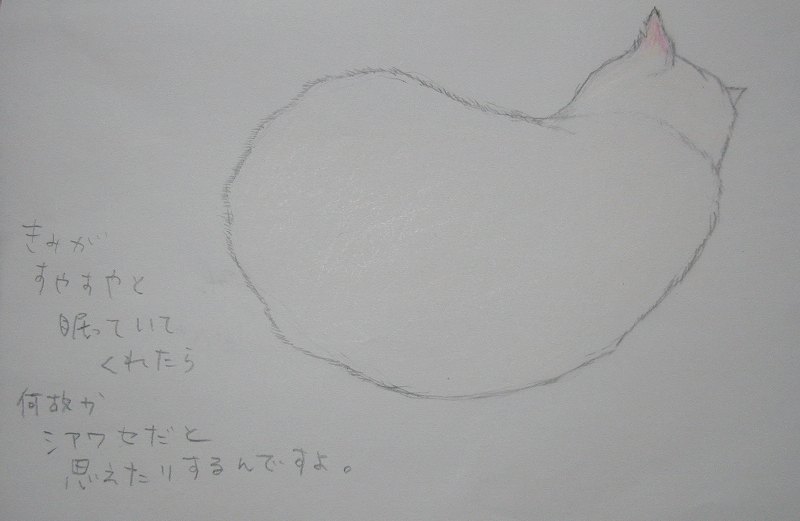 きみが
すやすやと
眠っていて
くれたら
何故か
シアワセだと
思えたりするんですよ。